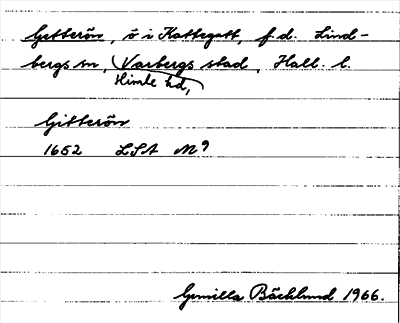 Getterön, ö i Kattegatt, f.d. Lind-
bergs sn, Varbergs stad, Hall. l.
Himle hd,
Gitterön
1652 LSA M9
Gunilla Bäcklund 1966.